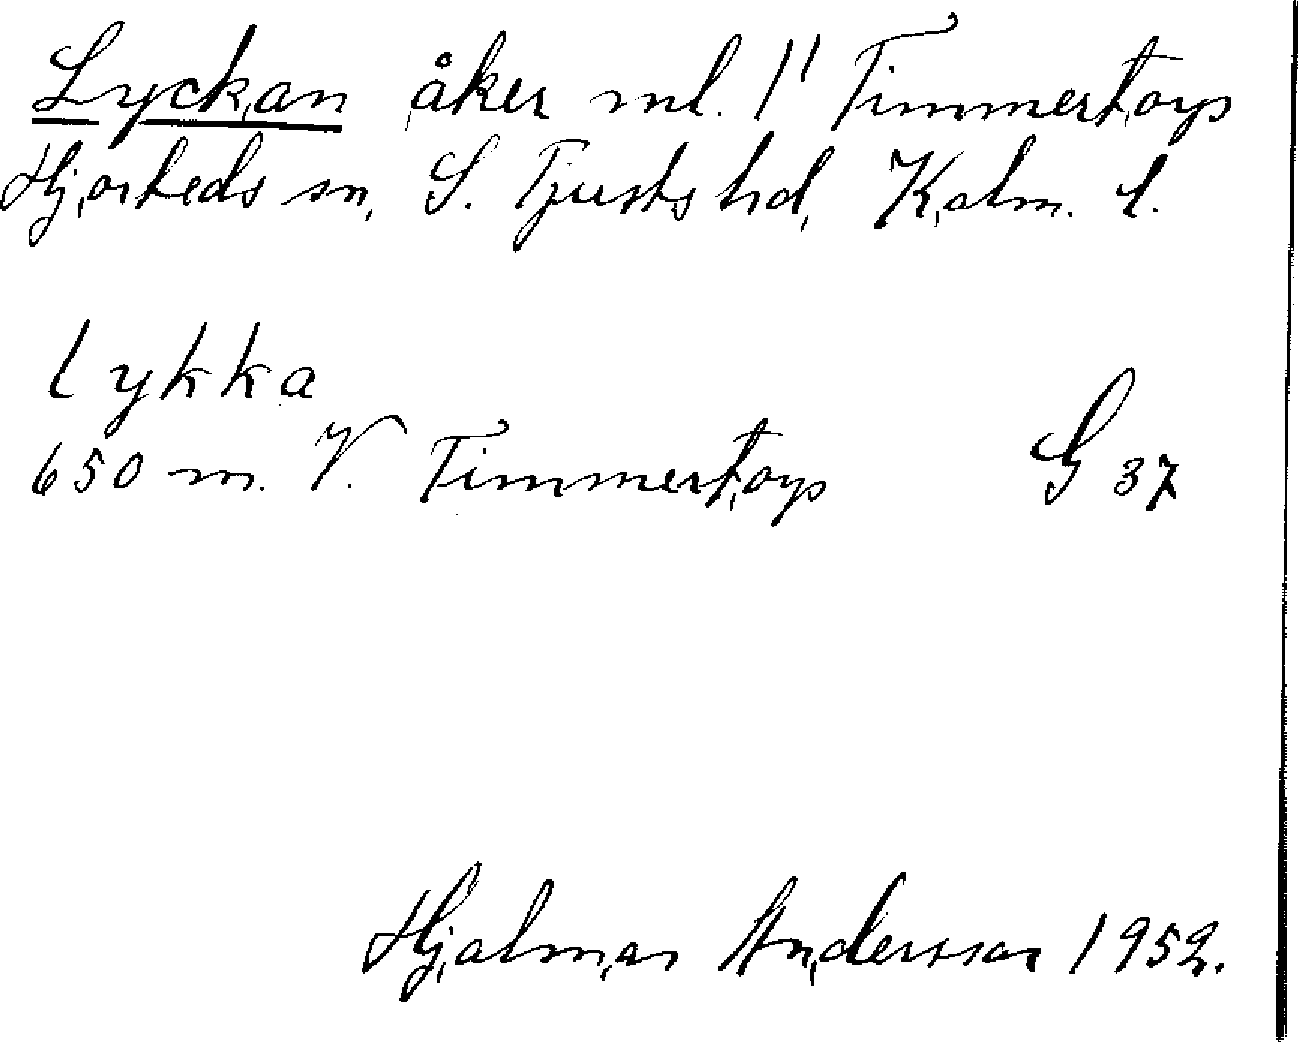 Lyckan åker ml. 1" Timmertorp
Hjorteds sn, S. Tjusts hd, Kalm. l.
lykka
650 m. V. Timmertorp G 37
Hjalmar Andersson 1952.